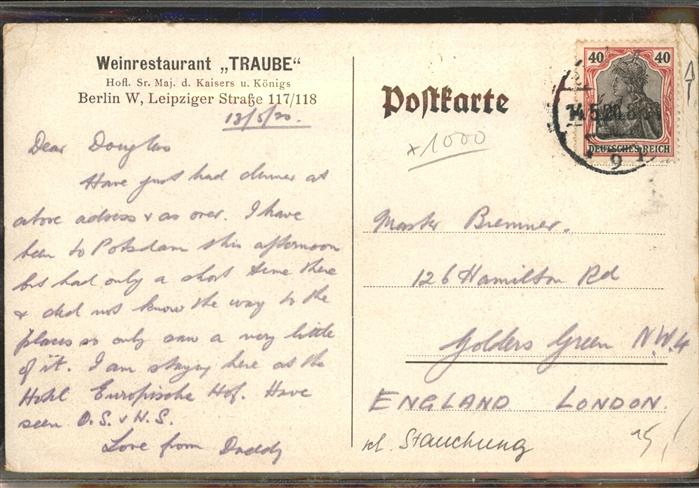 Weinrestaurant „TRAUBE“
Hofl. Sr. Maj. d. Kaisers u. Königs
Berlin W, Leipziger Straße 117/118
13/5/20.
Dear Douglas
Have just had dinner at
above adress & as over. I have
been to Potsdam this afternoon
but had only a short time there
& did not know the way to the
places so only saw a very little
of it. I am staying here at the
Hotel Europische Hof. Have
seen O.S. & H.S.
Love from Daddy
Postkarte
x1000
40 40
DEUTSCHES REICH
14.5.20.8
9
Master Bremner.
126 Hamilton Rd
Golders Green N.W.4
ENGLAND LONDON.
kl. Stauchung